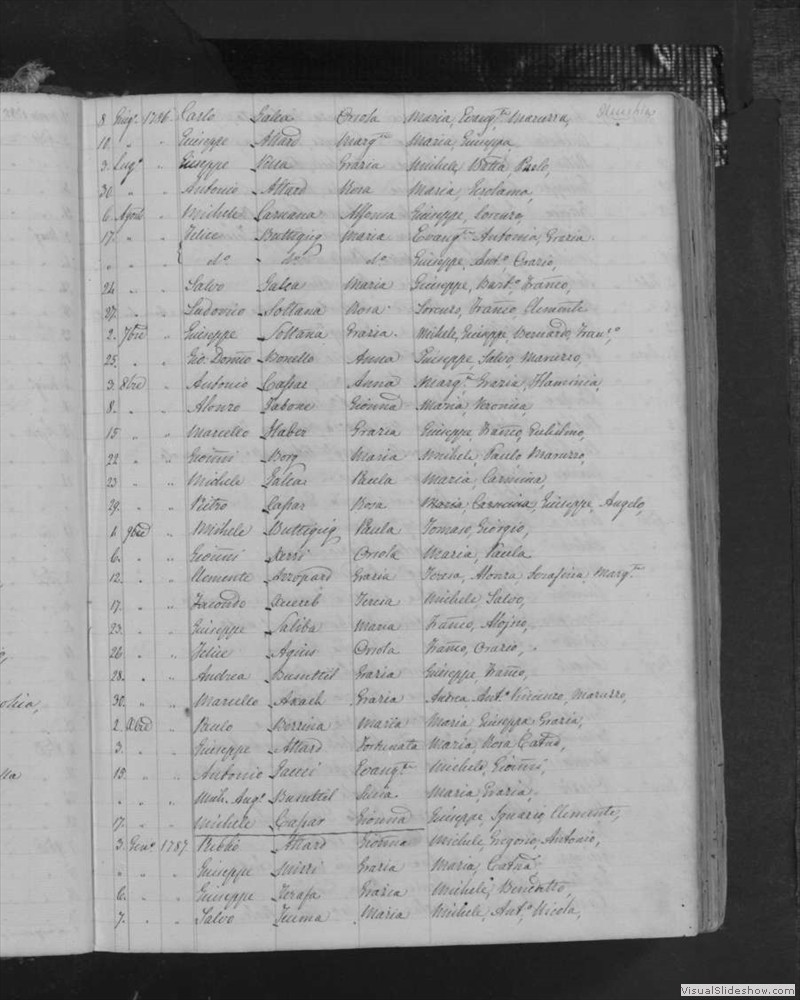 8. Giug.o 1786 Carlo Galea Oriola Maria, Evang.ta Maruzza,
10. " " Giuseppe Attard Marg.ta Maria, Giuseppa
3. Lug.o " Giuseppe Grazia Michele, Batta Paolo,
30. " " Antonio Attard Rosa Maria, Gerolama,
6. " Michele Caruana Alfonsa Giuseppe, Lorenzo,
17. " " Felice Buttigieg Maria Evang.ta Antonia, Grazia.
" " " do. do. do. Giuseppe, Ant.o Orazio,
24. " " Salvo Galea Maria Giuseppe, Bart.o Franco,
27. " " Ludovico Soltana Rosa Lorenzo, Franco, Clemente
2. 7bre " Giuseppe Soltana Grazia. Michele, Giuseppe, Bernardo, Fran.o
25. " " Gio. Domco Bonello Anna Giuseppe, Salvo, Maruzzo,
3. 8bre " Antonio Caspar Anna Marg.ta Grazia, Flaminia,
8. " " Alonzo Zabone Gionna Maria, Veronica,
15 " " Marcello Grazia Giuseppe, Franco,
22 " " Gionni Borg Maria Michele, Paulo Maruzzo,
23 " " Michele Galea Paula Maria, Carmina,
29. " " Pietro Caspar Rosa Maria, Carmina, Giuseppe, Angelo,
1. 9bre " Michele Buttigieg Paula Tomaso, Giorgio,
6. " " Gionni Xerri Oriola Maria, Paula.
12. " " Clemente Azzopard Grazia Teresa, Alonza, Serafina, Marg.ta
17. " " Facondo Teresa Michele, Salvo,
23. " " Giuseppe Saliba Maria Franco, Aloisio,
26. " " Felice Agius Oriola Franco, Orazio,
28. " " Andrea Bunticil Grazia Giuseppe, Franco,
30. " " Marcello Axach Grazia Andrea Ant.o Vincenzo, Maruzzo,
2. Xbre " Paulo Borrina Maria Maria Giuseppa Grazia,
3. " " Giuseppe Attard Fortunata Maria, Rosa Catna,
15. " " Antonio Gauci Evang.ta Michele, Gionni,
" " " Mich. Ang.o Bunticil Maria, Grazia,
17. " " Michele Caspar Gionna Giuseppe, Ignazio, Clemente,
3. Gen.o 1787 Attard Gionna Michele, Gregorio, Antonio,
" " " Giuseppe Grazia Maria, Catna
6. " " Giuseppe Zerafa Grazia Michele, Benedetto,
7. " " Salvo Zuma Maria Michele, Ant.o Nicola,
VisualSlideshow.com